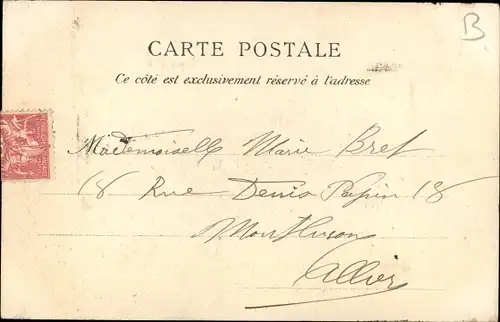 B
CARTE POSTALE
Ce côté est exclusivement réservé à l'adresse
Mademoiselle Marie Bret
18 Rue Denis Papin 18
Montluçon
Allier